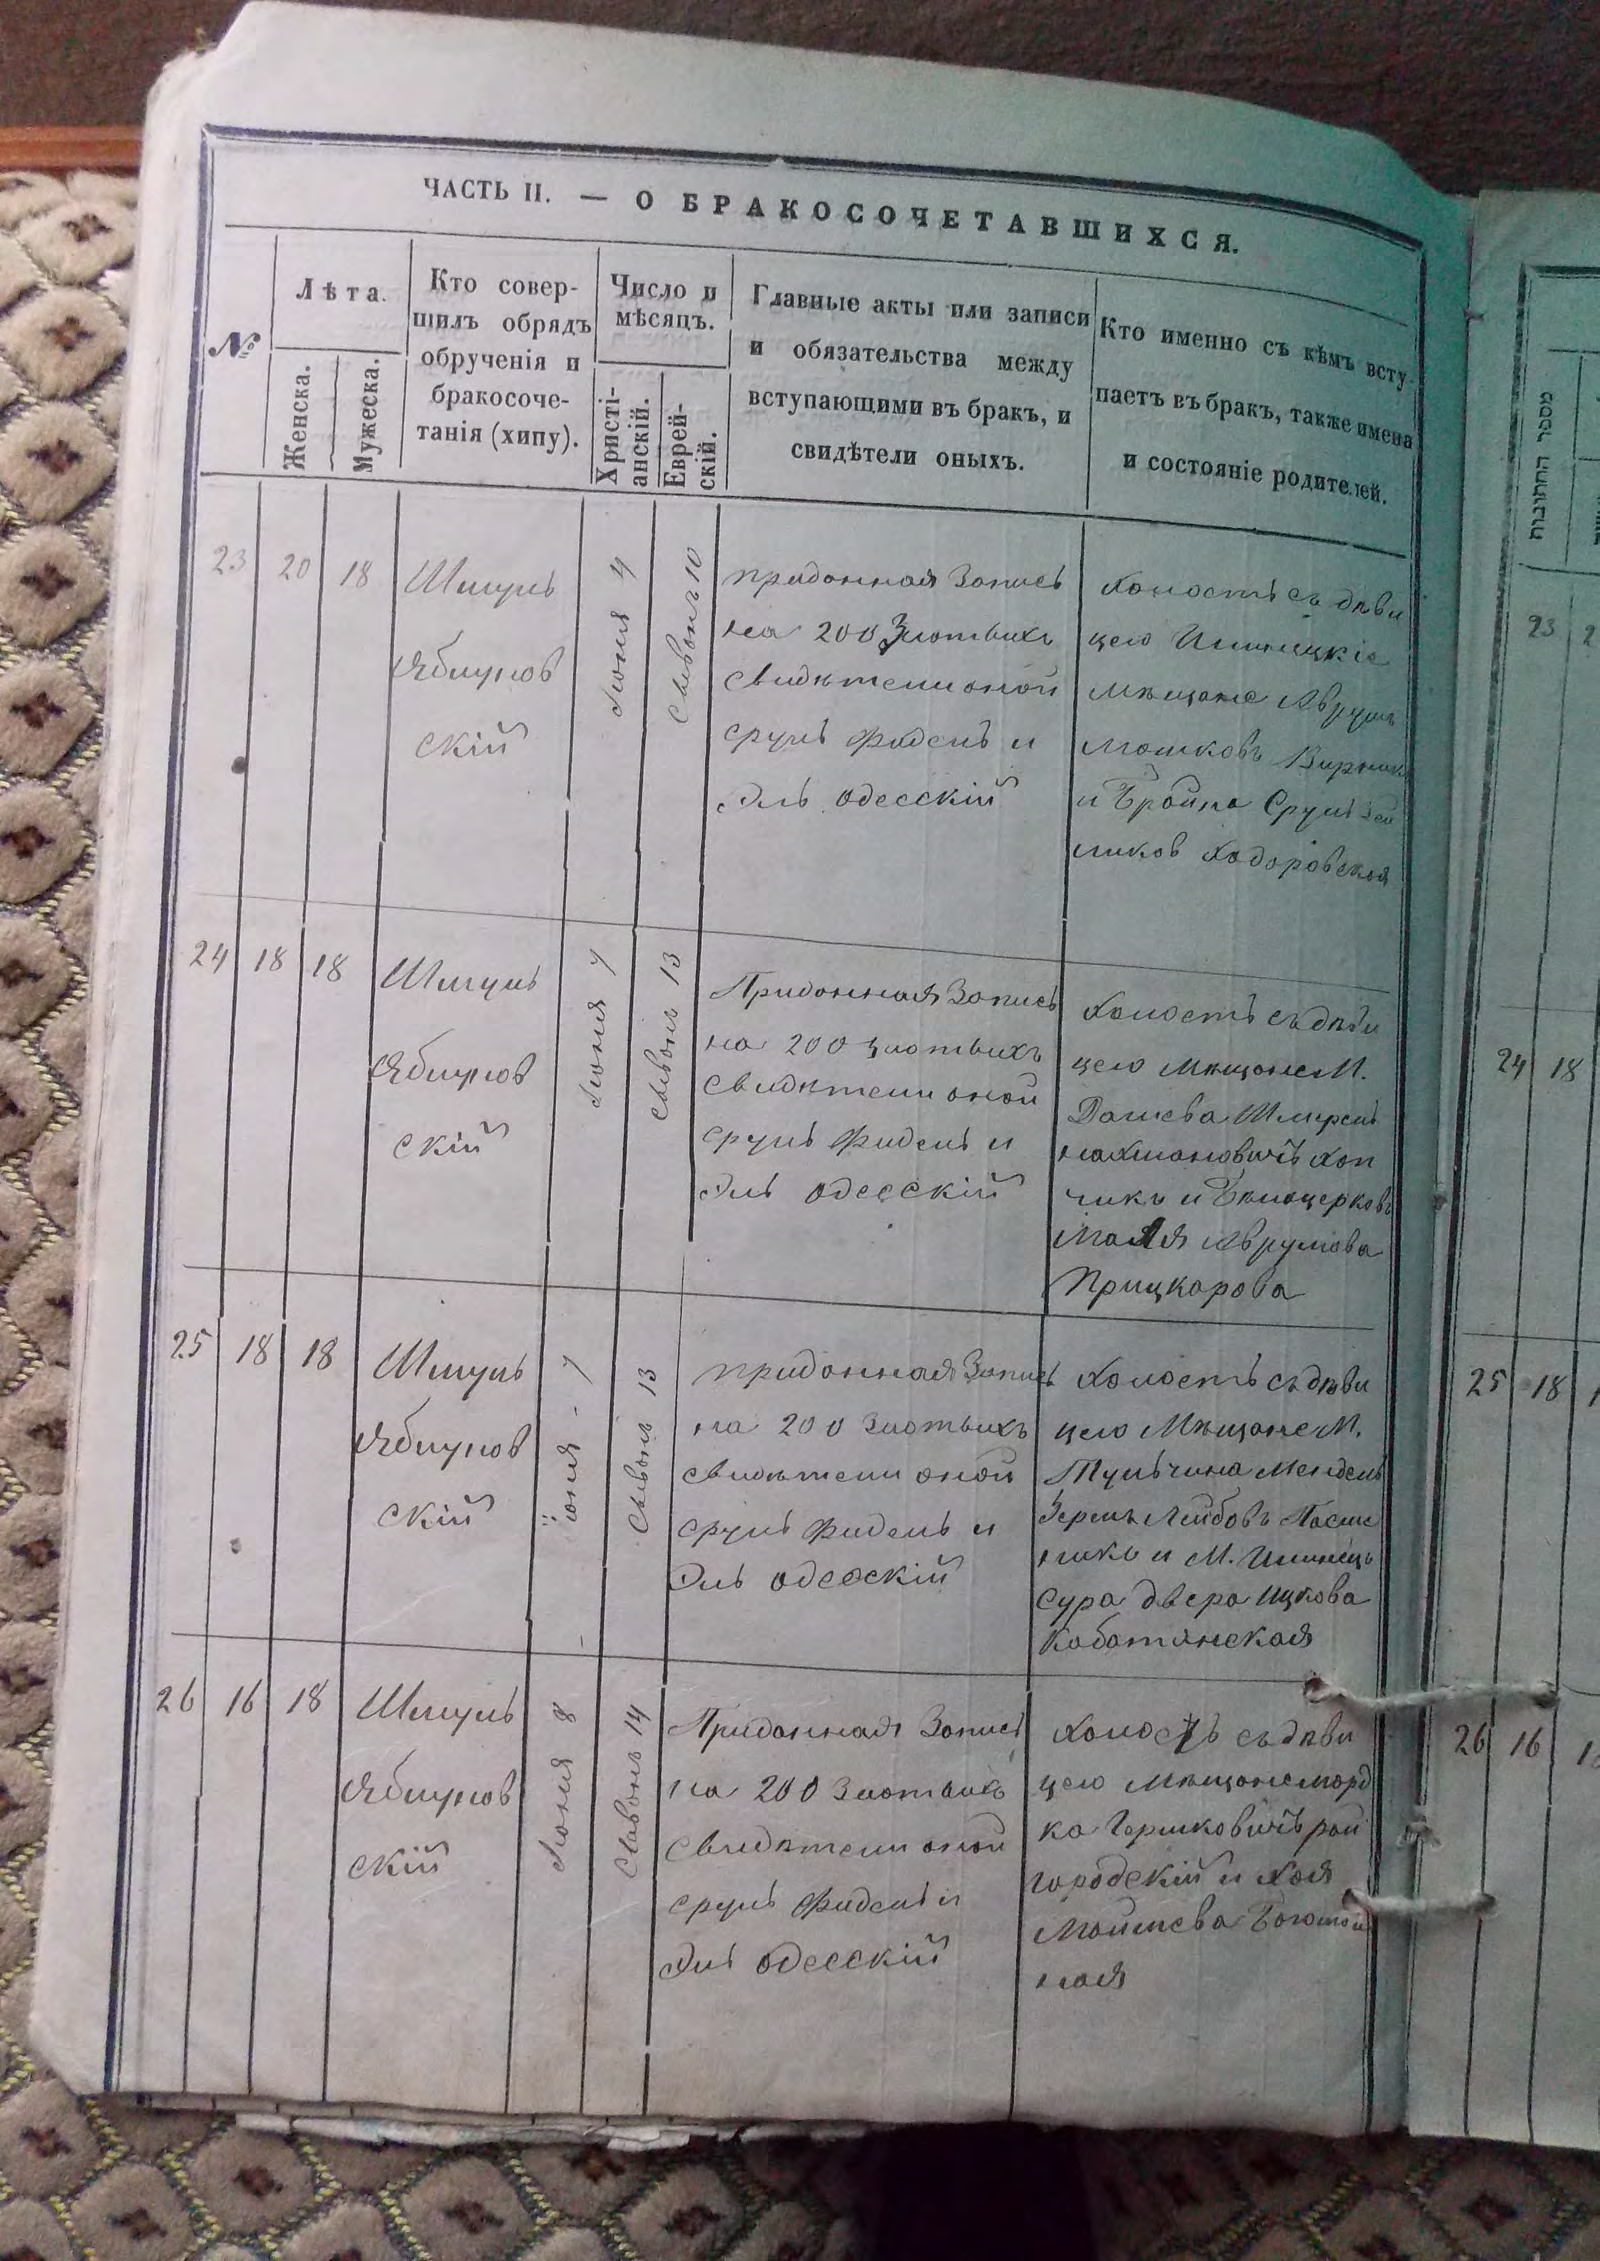 ЧАСТЬ II. — О БРАКОСОЧЕТАВШИХСЯ.
№
Лѣта.
Женска.
Мужеска.
Кто совер-
шилъ обрядъ
обрученія и
бракосоче-
танія (хипу).
Число и
мѣсяцъ.
Христі-
анскій.
Еврей-
скій.
Главные акты или записи
и обязательства между
вступающими въ бракъ, и
свидѣтели оныхъ.
Кто именно съ кѣмъ всту-
паетъ въ бракъ, также имена
и состояніе родителей.
23
20
18
Шмуль
Яблунов
скій
Іюня 4
Сывонъ 10
приданная Запись
на 200 Злотыхъ
свидѣтели оной
сруль Фидель и
Эль одесскій
Холостъ съ дѣви
цею Илинецкіе
мѣщане Аврумъ
Мошковъ Вирник
и Бройна Сруль Зей
ликов Ходоровская
24
18
18
Шмуль
Яблунов
скій
Іюня 7
Сывонъ 13
Приданная Запись
на 200 злотыхъ
свидѣтели оной
сруль Фидель и
Эль одесскій
Холостъ съ дѣви
цею Мѣщане М.
Дашева Шмерель
нахмановичъ Хап
чикъ и Бѣлоцерковъ
Малля Аврумова
Прицкарова
25
18
18
Шмуль
Яблунов
скій
Іюня - 7
Сывонъ 13
приданная Запись
на 200 Злотыхъ
свидѣтели оной
сруль Фидель и
Эль одесскій
Холостъ съ дѣви
цею Мѣщане М.
Тульчина Мендель
Зерель Лейбовъ Пасич
никъ и М. Илинець
Сура двера Ицкова
Кабатянская
26
16
18
Шмуль
Яблунов
скій
Іюня 8
Сывонъ 14
Приданная Запись
на 200 Злотыхъ
свидѣтели оной
сруль Фидель и
Эль одесскій
Холостъ съ дѣви
цею мѣщане морд
ка Гершковичъ рай
городскій и Хая
Мошкова
ная
מספר החתונות
23
24 18
25 18
26 16